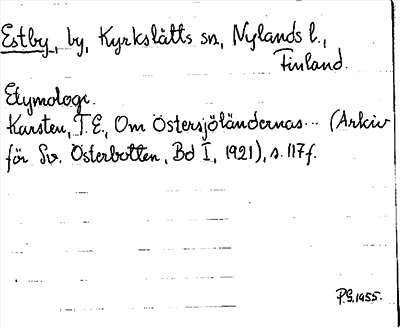 Estby, by, Kyrkslätts sn, Nylands l.,
Finland.
Etymologi.
Karsten, T.E., Om Östersjöländernas... (Arkiv
för Sv. Österbotten, Bd I, 1921), s. 117f.
P.G. 1955.